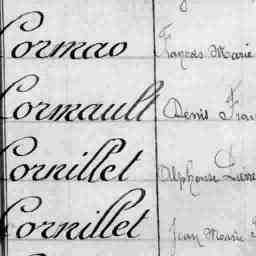 Cormao François Marie
Cormault Denis
Cornillet Alphonse
Cornillet Jean Marie